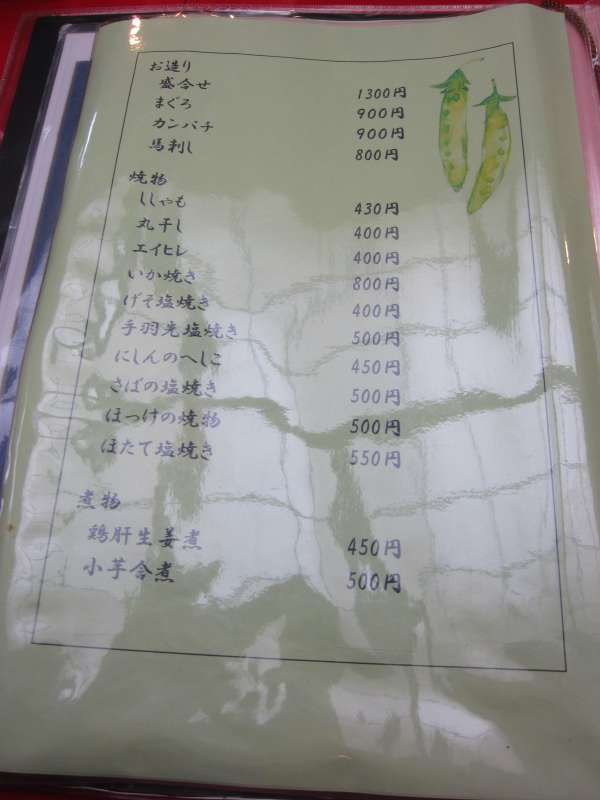 お造り
盛合せ 1300円
まぐろ 900円
カンパチ 900円
馬刺し 800円
焼物
ししゃも 430円
丸干し 400円
エイヒレ 400円
いか焼き 800円
げそ塩焼き 400円
手羽先塩焼き 500円
にしんのへしこ 450円
さばの塩焼き 500円
ほっけの焼物 500円
ほたて塩焼き 550円
煮物
鶏肝生姜煮 450円
小芋含煮 500円